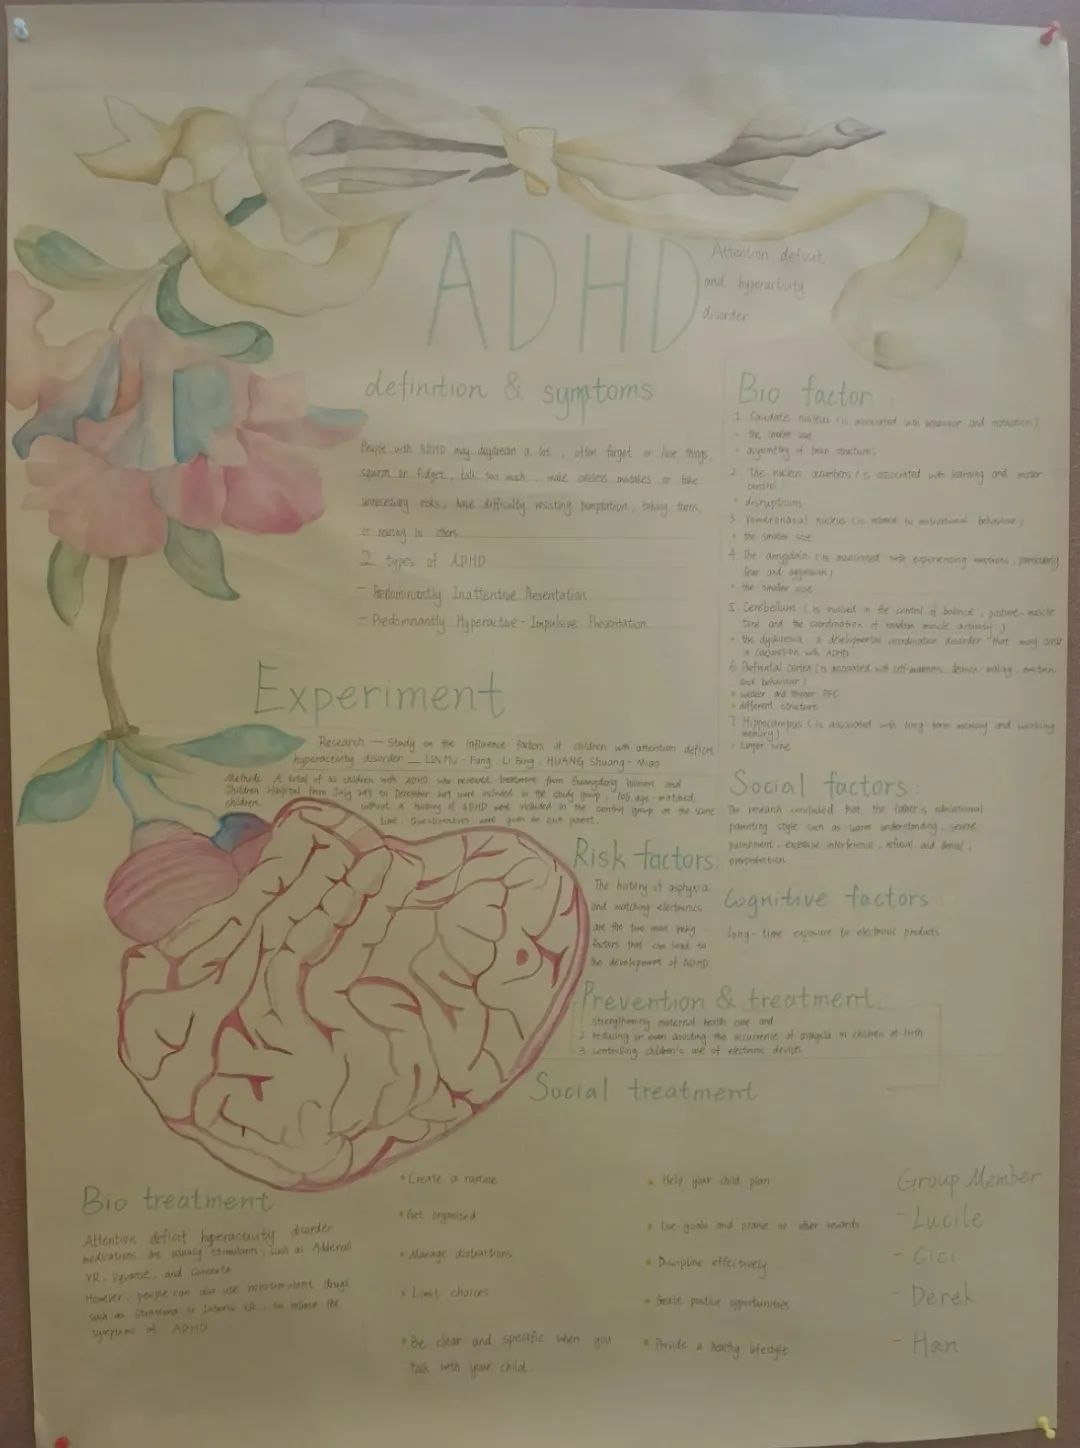 ADHD
Attention deficit,
and hyperactivity
disorder
definition & symptoms
People with ADHD may daydream a lot, often forget or lose things,
squirm or fidget, talk too much, make careless mistakes or take
unnecessary risks, have difficulty resisting temptation, taking turns,
or relating to others
2 types of ADHD
- Predominantly Inattentive Presentation
- Predominantly Hyperactive-Impulsive Presentation
Bio factor:
1. Caudate nucleus (is associated with behaviour and motivation)
- the smaller size
- asymmetry of brain structures
2. The nucleus accumbens (is associated with learning and motor
control)
disruptions
3. (is related to motivational behaviour)
the smaller size
4. The amygdala (is associated with experiencing emotions, particularly
fear and aggression)
the smaller size
5. Cerebellum (is involved in the control of balance, posture, muscle
tone and the coordination of random muscle activity)
the a developmental coordination disorder that may
in conjunction with ADHD
6. Prefrontal cortex (is associated with self-awareness, decision making, emotion
and behaviour)
weaker and PFC
different structure
7. Hippocampus (is associated with long term memory and working
memory)
larger size
Experiment
Research — Study on the influence factors of children with attention deficit
hyperactivity disorder — LIN Mu-Fang, LI Bing, HUANG Shuang-Miao
Methods: A total of children with ADHD who received treatment from Guangdong Women and
Children Hospital from July to December were included in the study group, age-matched
children without a history of ADHD were included in the control group at the same
time. Questionnaires were given to each parent.
Risk factors:
The history of asphyxia
and watching electronics
are the two main risky
factors that can lead to
the development of ADHD
Social factors:
The research concluded that the father's educational
parenting style such as warm understanding, severe
punishment, excessive interference, refusal and denial,
overprotection
Cognitive factors
long-time exposure to electronic products
Prevention & treatment:
1 strengthening maternal health care and
2 reducing or even avoiding the occurrence of in children at birth
3 controlling children's use of electronic devices
Social treatment
• Create a routine
• Get organized
• Manage distractions
• Limit choices
• Be clear and specific when you
talk with your child.
• Help your child plan
• Use goals and praise or other rewards
• Discipline effectively
• Create positive opportunities
• Provide a healthy lifestyle
Bio treatment
Attention deficit hyperactivity disorder
medications are usually stimulants, such as Adderall
XR, Vyvanse, and Concerta
However, people can also use nonstimulant drugs
such as Strattera or XR, to the
symptoms of ADHD
Group Member
- Lucile
- Cici
- Derek
- Han